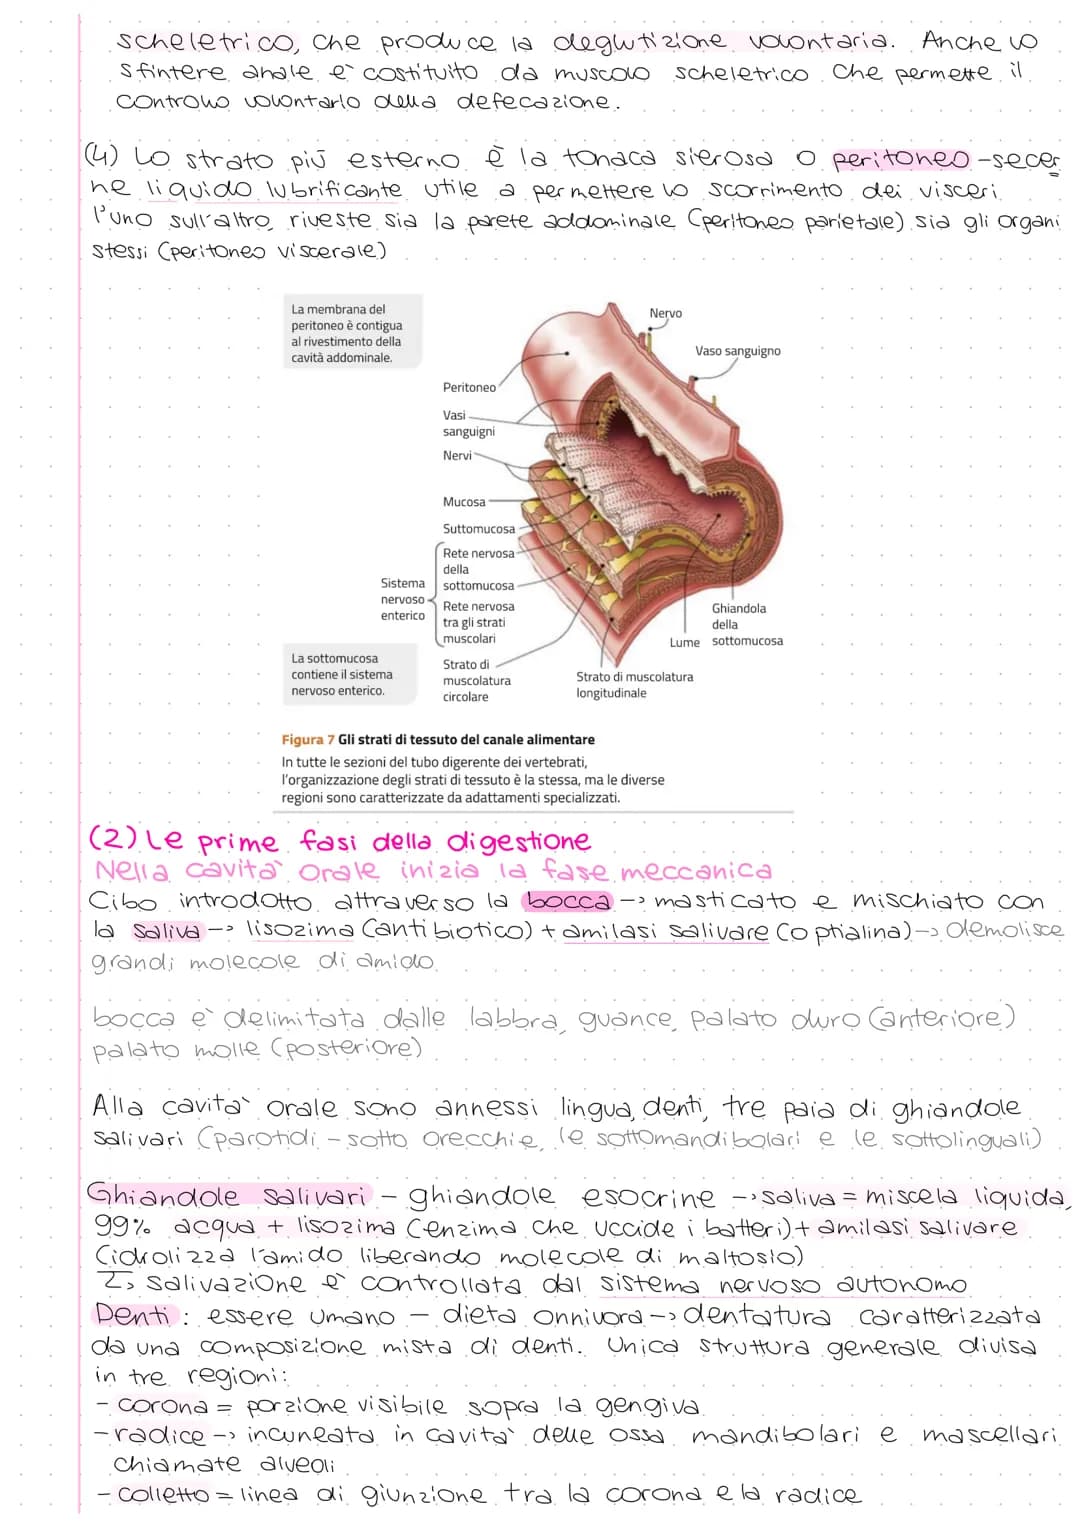 scheletrico, che produce la deglutizione volontaria. Anche lo
sfintere anale è costituito da muscolo scheletrico che permette il
controllo volontario della defecazione.
(4) Lo strato più esterno è la tonaca sierosa o peritoneo - secer
ne liquido lubrificante utile a permettere lo scorrimento dei visceri
l'uno sull'altro, riveste sia la parete addominale (peritoneo parietale) sia gli organi
stessi (peritoneo viscerale)
La membrana del
peritoneo è contigua
al rivestimento della
cavità addominale.
Nervo
Vaso sanguigno
Peritoneo
Vasi
sanguigni
Nervi
Mucosa
Suttomucosa
Rete nervosa
della
sottomucosa
Sistema
nervoso
enterico
Rete nervosa
tra gli strati
muscolari
Ghiandola
della
sottomucosa
Lume
La sottomucosa
contiene il sistema
nervoso enterico.
Strato di
muscolatura
circolare
Strato di muscolatura
longitudinale
Figura 7 Gli strati di tessuto del canale alimentare
In tutte le sezioni del tubo digerente dei vertebrati,
l'organizzazione degli strati di tessuto è la stessa, ma le diverse
regioni sono caratterizzate da adattamenti specializzati.
(2) Le prime fasi della digestione
Nella cavità orale inizia la fase meccanica
Cibo introdotto attraverso la bocca -> masticato e mischiato con
la saliva -> lisozima (antibiotico) + amilasi salivare (o ptialina) -> demolisce
grandi molecole di amido
bocca è delimitata dalle labbra, guance, palato duro (anteriore)
palato molle (posteriore)
Alla cavità orale sono annessi lingua, denti, tre paia di ghiandole
salivari (parotidi - sotto orecchie, le sottomandibolari e le sottolinguali)
Ghiandole salivari - ghiandole esocrine -> saliva = miscela liquida,
99% acqua + lisozima (enzima che uccide i batteri) + amilasi salivare
(idrolizza l'amido liberando molecole di maltosio)
↳ salivazione è controllata dal sistema nervoso autonomo
Denti : essere umano - dieta onnivora -> dentatura caratterizzata
da una composizione mista di denti. Unica struttura generale divisa
in tre regioni:
- corona = porzione visibile sopra la gengiva
- radice -> incuneata in cavità delle ossa mandibolari e mascellari
chiamate alveoli
- colletto = linea di giunzione tra la corona e la radice